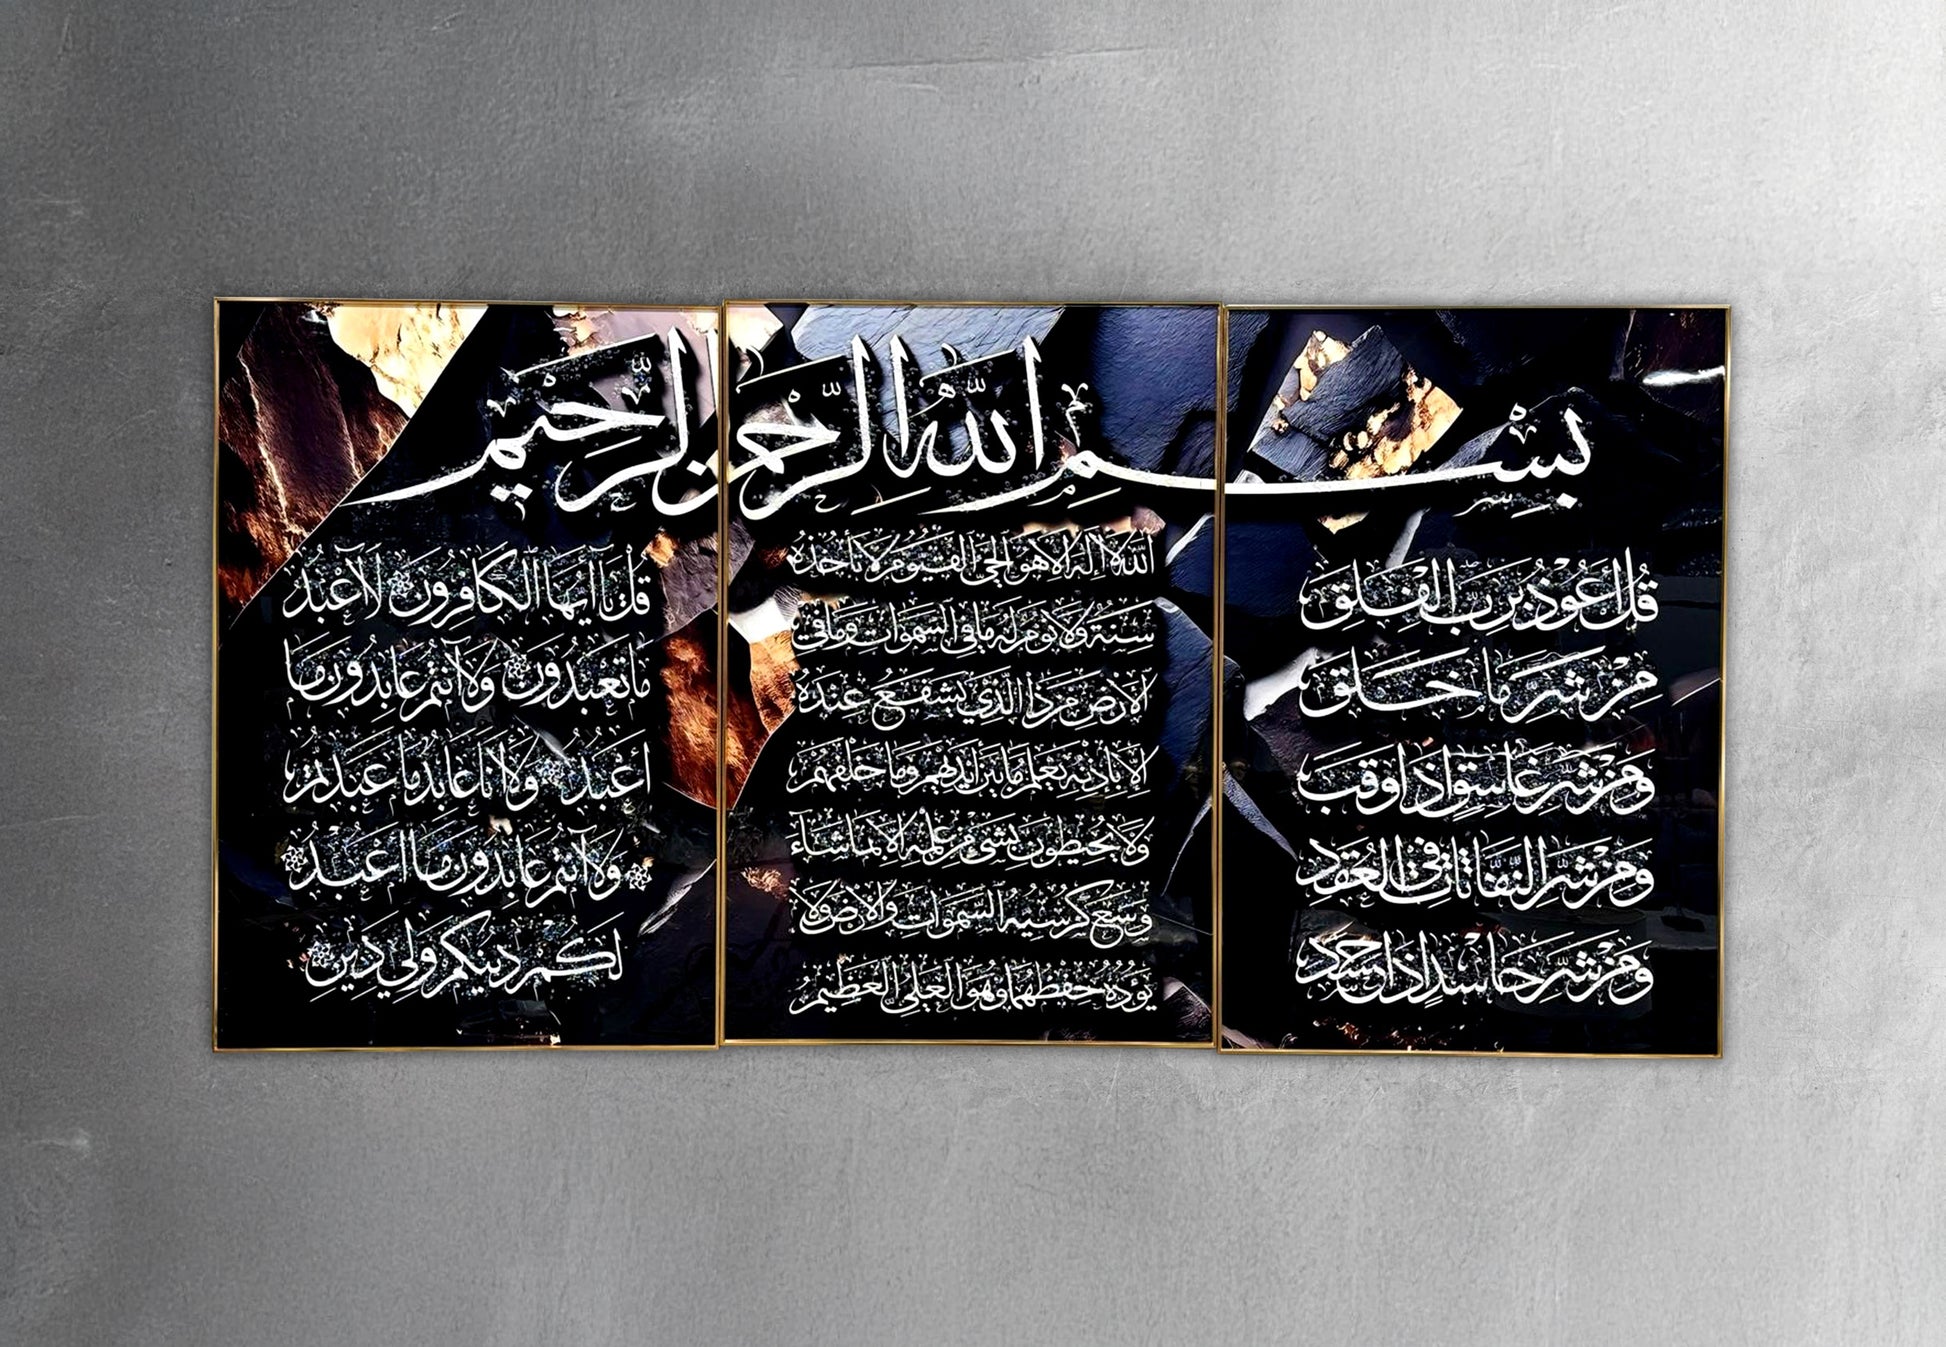 بسم الله الرحمن الرحيم
قل أعوذ برب الفلق
من شر ما خلق
ومن شر غاسق اذا وقب
ومن شر النفاثات في العقد
ومن شر حاسد اذا حسد
الله لا اله الا هو الحي القيوم لا تأخذه
سنة ولا نوم له ما في السموات وما في
الارض من ذا الذي يشفع عنده
الا باذنه يعلم ما بين ايديهم وما خلفهم
ولا يحيطون بشئ من علمه الا بما شاء
وسع كرسيه السموات والارض ولا
يؤده حفظهما وهو العلي العظيم
قل يا أيها الكافرون لا أعبد
ما تعبدون ولا أنتم عابدون ما
أعبد ولا أنا عابد ما عبدتم
ولا أنتم عابدون ما أعبد
لكم دينكم ولي دين